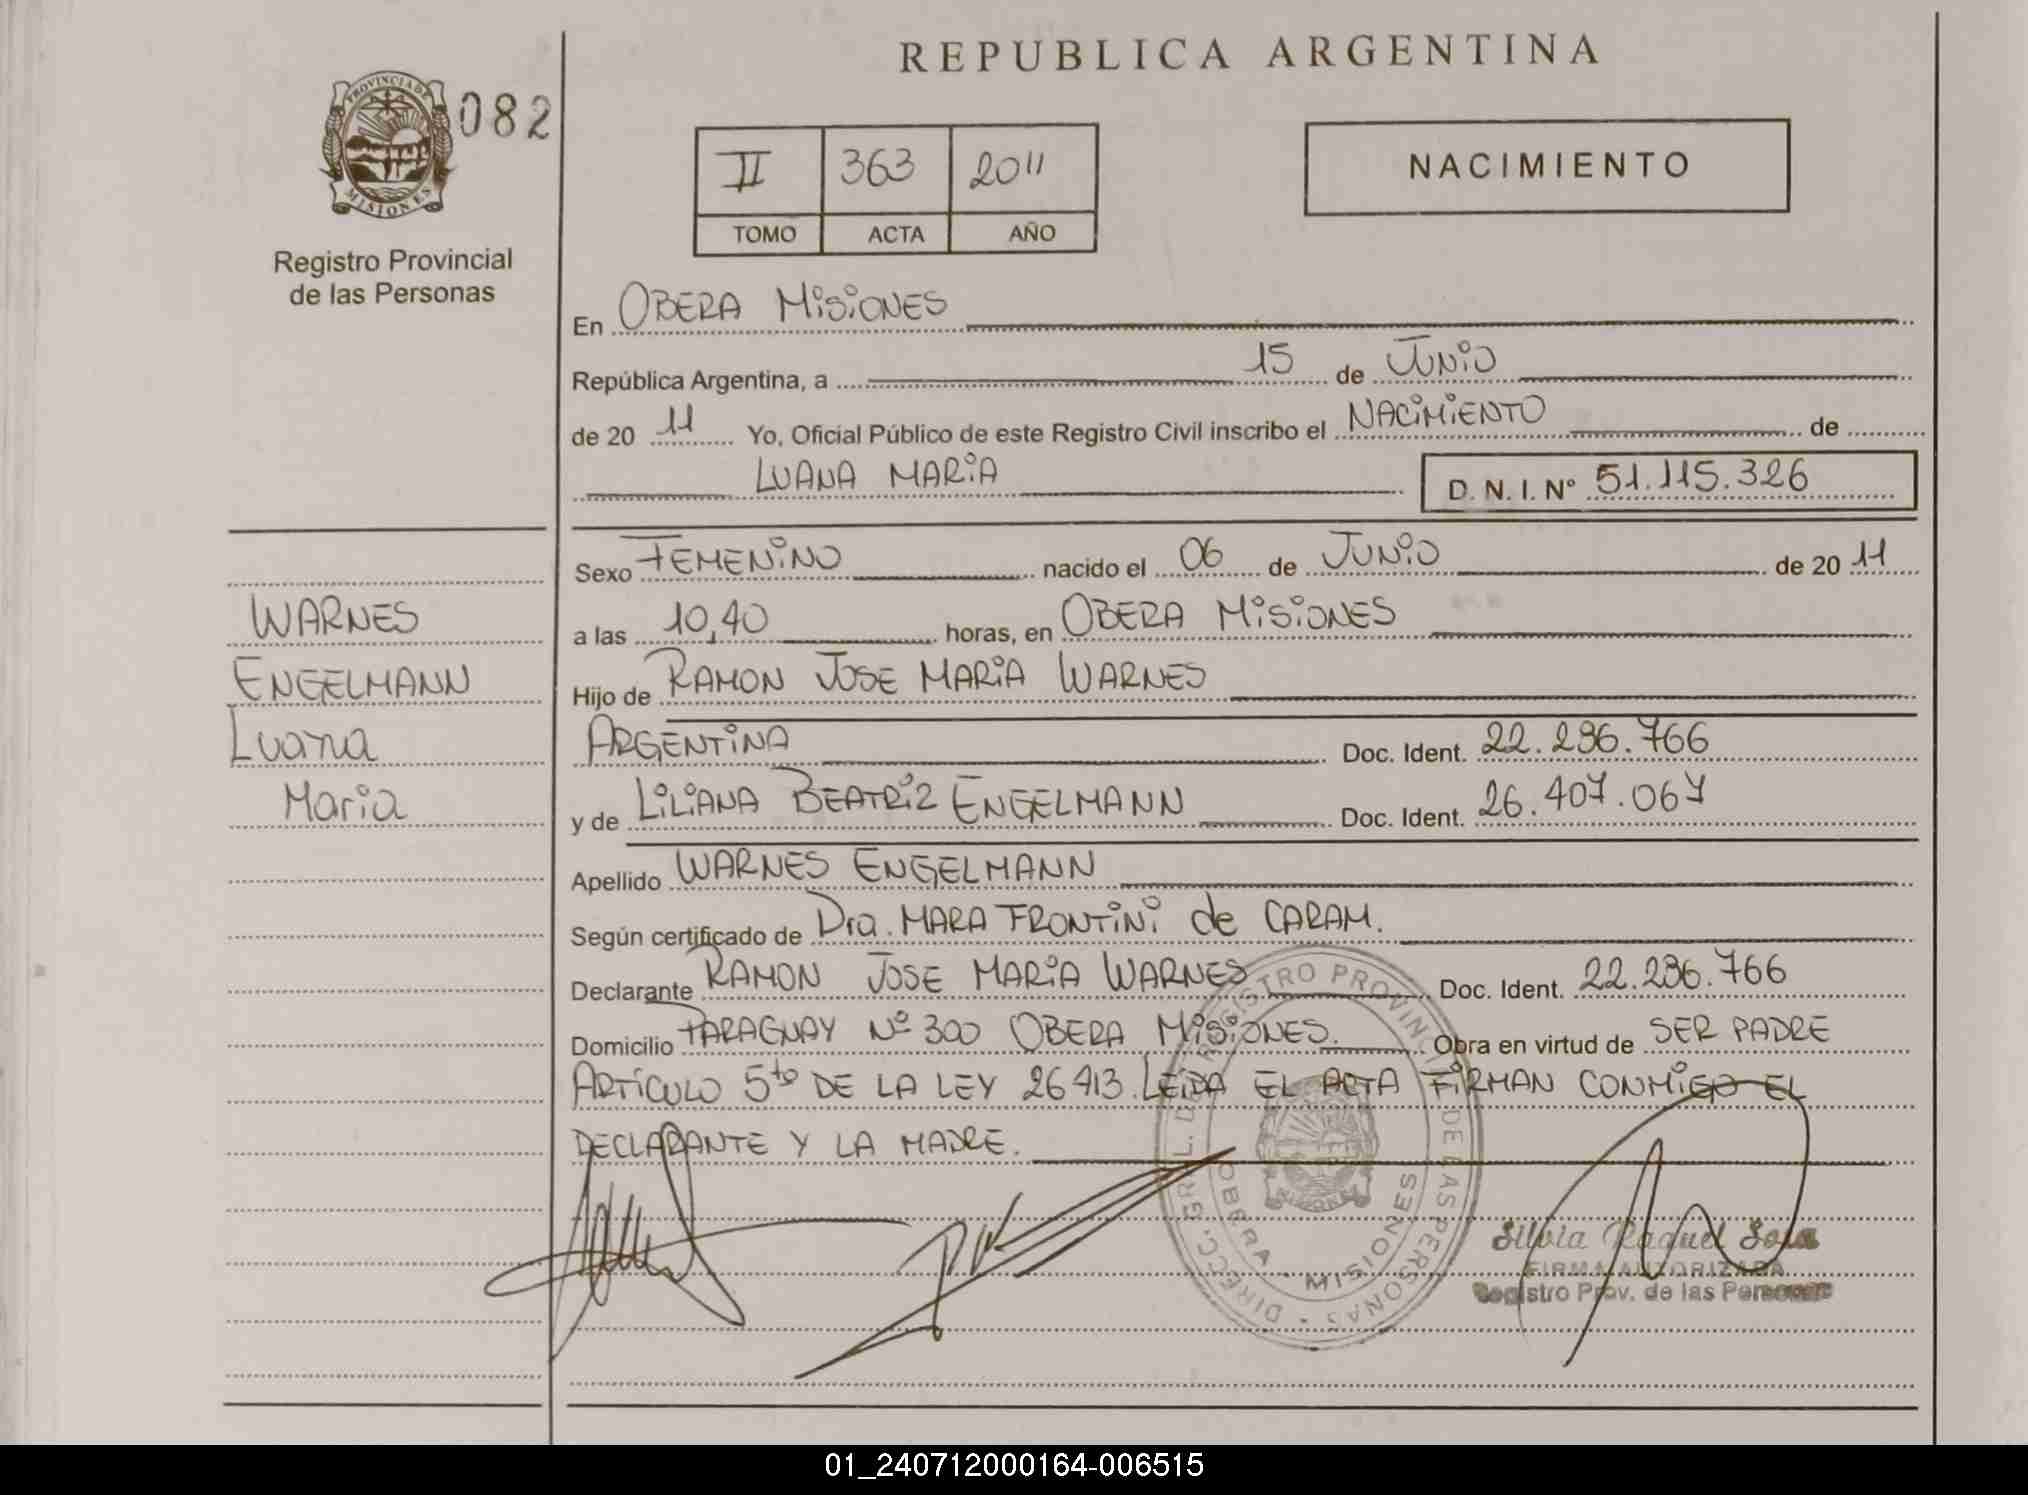 REPUBLICA ARGENTINA
PROVINCIA DE
MISIONES
082
Registro Provincial
de las Personas
II 363 2011
TOMO ACTA AÑO
NACIMIENTO
En OBERA MISIONES
República Argentina, a 15 de JUNIO
de 20 11 Yo, Oficial Público de este Registro Civil inscribo el NACIMIENTO de
LUANA MARIA D. N. I. Nº 51.115.326
Sexo FEMENINO nacido el 06 de JUNIO de 20 11
a las 10,40 horas, en OBERA MISIONES
Hijo de RAMON JOSE MARIA WARNES
ARGENTINA Doc. Ident. 22.236.766
y de LILIANA BEATRIZ ENGELMANN Doc. Ident. 26.407.067
Apellido WARNES ENGELMANN
Según certificado de Dra. MARA FRONTINI de CARAM.
Declarante RAMON JOSE MARIA WARNES Doc. Ident. 22.236.766
Domicilio PARAGUAY Nº 300 OBERA MISIONES. Obra en virtud de SER PADRE
ARTÍCULO 5to DE LA LEY 26413. LEIDA EL ACTA FIRMAN CONMIGO EL
DECLARANTE Y LA MADRE.
WARNES
ENGELMANN
Luana
Maria
DIRECC. GRAL. DEL REGISTRO PROVINCIAL DE LAS PERSONAS
OBERA - MISIONES
Silvia Raquel Sosa
FIRMA AUTORIZADA
Registro Prov. de las Personas
01_240712000164-006515